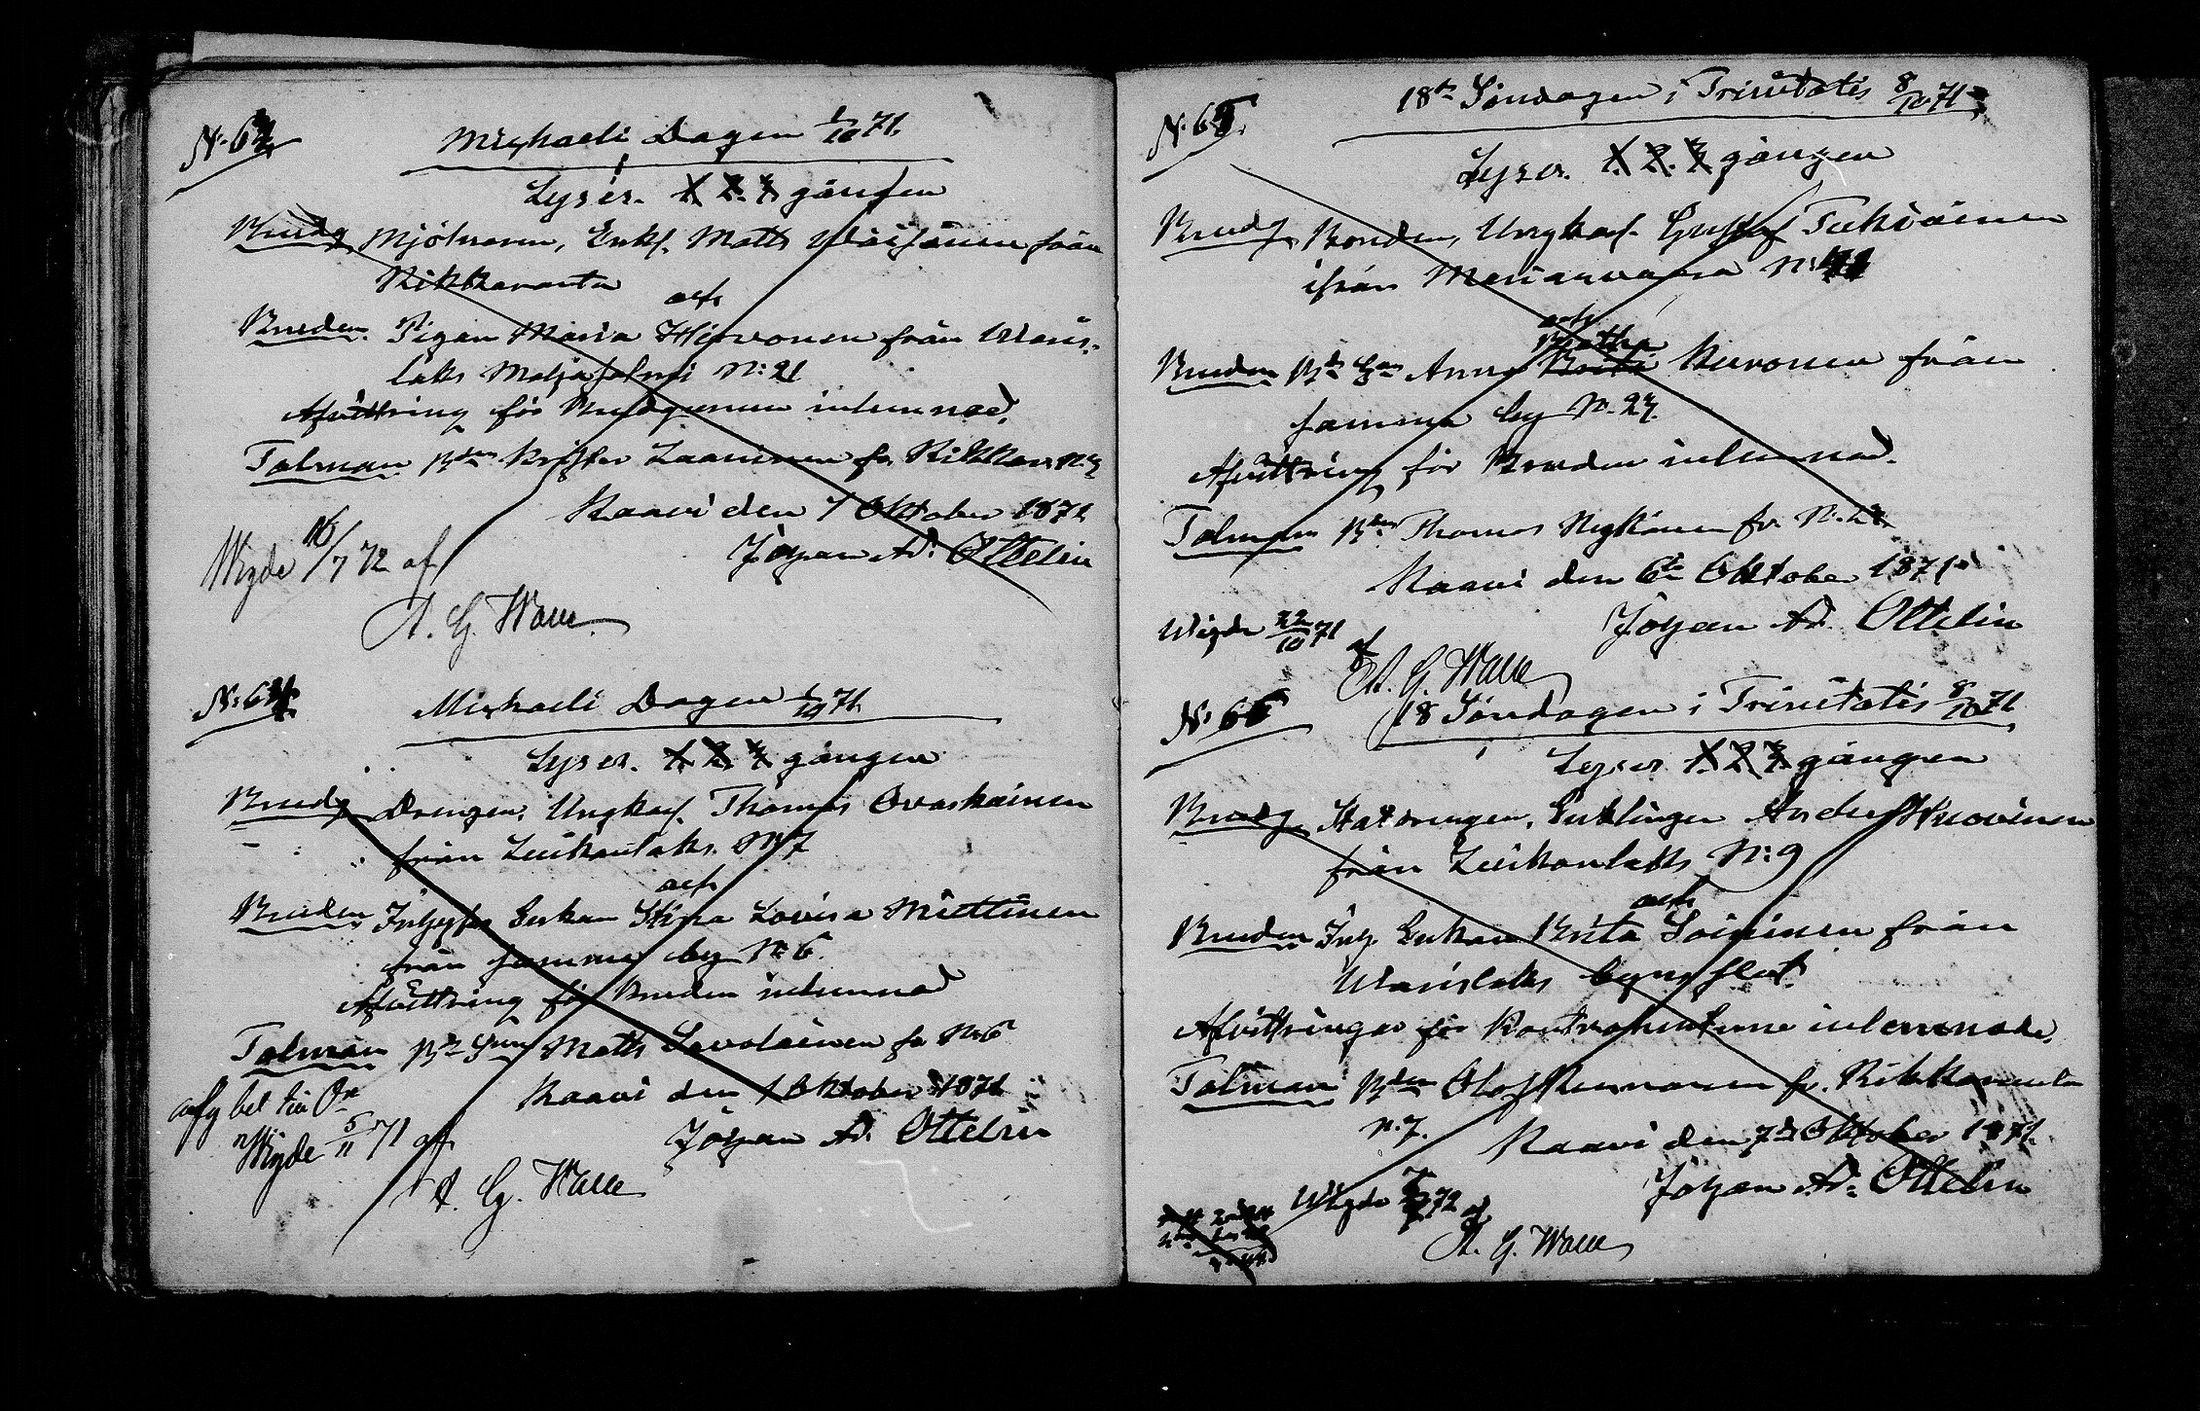 N:o 63
Michaeli Dagen 1/10 71.
Lyses. 1. 2. 3 gången
Brudg. Mjölnaren, Enkl. Matts Väisänen från
Rikkaranta
och
Bruden. Pigan Maria Hirvonen från Waris-
laks Maljasalmi N:21
Afvittring för Brudgummen inlemnad.
Talman Bden Krister Laaninen fr. Rikkar. N:3
Kaavi den 1 Oktober 1871
Johan Ad. Ottelin
Wigde 16/7 72 af
A. G. Walle
N:o 64
Michaeli Dagen 1/10 71.
Lyses. 1. 2. 3 gången
Brudg. Drengen, Ungkarl. Thomas Ovaskainen
från Luikonlaks. N:7
och
Bruden Inhyses Enkan Stina Lovisa Miettinen
från samma by N:6.
Afvittring för Bruden inlemnad
Talman Matts Savolainen fr N:6
Kaavi den 1 Oktober 1871
Johan Ad. Ottelin
afg bet
Wigde 5/11 71 af
A. G. Walle
N:65.
18de Söndagen i Trinitatis 8/10 71
Lyses. 1. 2. 3 gången
Brudg. Bonden, Ungkarl. Gustaf Tukiainen
ifrån Mariavaara N:
och
Bruden Anna Kuronen från
samma by N:27.
Afvittring för Bruden inlemnad.
Talman Bden Thomas Nykänen fr N:
Kaavi den 6te Oktober 1871
Johan Ad. Ottelin
Wigde 22/10 71
af
A. G. Walle
N:66
18 Söndagen i Trinitatis 8/10 71
Lyses 1. 2. 3 gången
Brudg. Statdrengen, Enklingen Anders Huovinen
från Luikonlaks N:9
och
Bruden Inh. Enkan Brita Soininen från
Warislaks bys slut.
Afvittringar för Kontrahenterne inlemnade.
Talman Bden Olof fr. Rikkaranta
N:7.
Kaavi den 7de Oktober 1871.
Johan Ad. Ottelin
Wigde 72 af
A. G. Walle